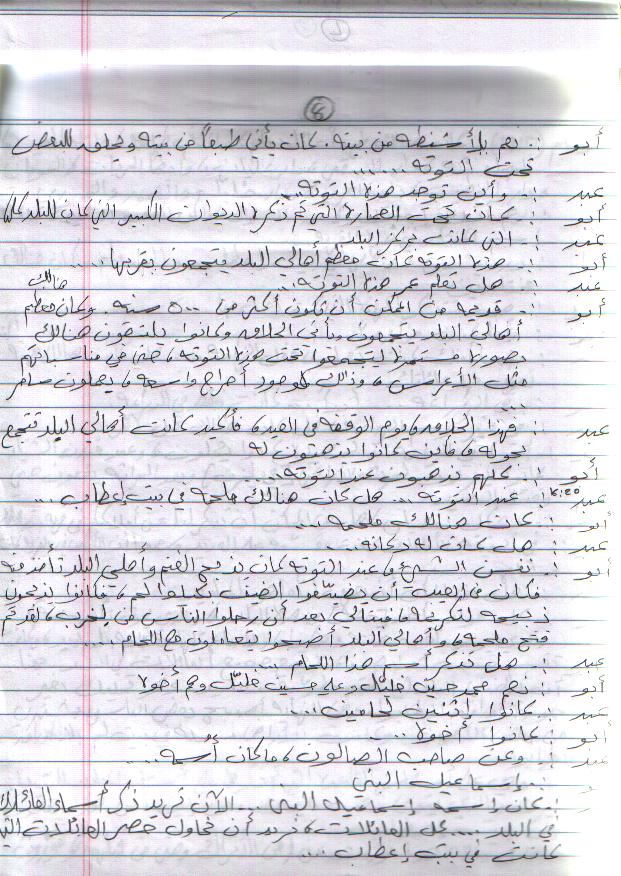 8
أبو : نعم بالأشنطه من بيته. كان يأتي طبعاً من بيته ويحلق للبعض
تحت التوته .......
عبد : وأين توجد هذه التوته...
أبو : كانت تحت العمارة التي تم ذكرها الديوان الكبير التي كان للبلد كلها
عبد : التي كانت مركز البلد
أبو : هذه التوته كانت معظم أهالي البلد يتجمعون بقربها....
عبد : هل تعلم عمر هذه التوته....
أبو : قديمه من الممكن أن تكون أكثر من ٥٠٠ سنه. وكان معظم هنالك
أهالي البلد يتجمعون ويأتي الحلاقه وكانوا يلتقون هنالك
بصوره مستمره ليتجمعوا تحت هذه التوته، حتى في مناسباتهم
مثل الأعراس، وذلك لوجود أحراج واسعه، يعملون سامر
...
عبد : فهذا الحلاقه، يوم الوقفه في العيد، فأكيد كانت أهالي البلد تتجمع
حوله، فأين كانوا يذهبون له
أبو : كلهم يذهبون عند التوته...
عبد : عند التوته ... هل كان هنالك ملحمه في بيت إعطاب ...
أبو : كانت هنالك ملحمه ....
عبد : هل كان له دكانه...
أبو : نفس الشيء، عند التوته كان يذبح الغنم وأهل البلد تأخذ منه
فكان من العيب أن يضيفوا الضيف بكيلوا لحم، فكانوا يذبحون
ذبيحه لتكريمه، فبالتالي بعد أن رحلوا الناس من الحرب،
فتح ملحمه، وأهالي البلد أصبحوا يتعاملون مع اللحام ....
عبد : هل تذكر أسم هذا اللحام ....
أبو : نعم محمد حسين خليل وعلي حسين خليل وهم أخوه
عبد : كانوا اثنين لحامين ....
أبو : كانوا أخوه ...
عبد : وعن صاحب الصالون، ما كان أسمه ....
إسماعيل البني
: كان إسمه إسماعيل البني ... الآن نريد ذكر أسماء العائلات
في البلد .... كل العائلات، نريد أن نحاول حصر العائلات التي
كانت في بيت إعطاب ...